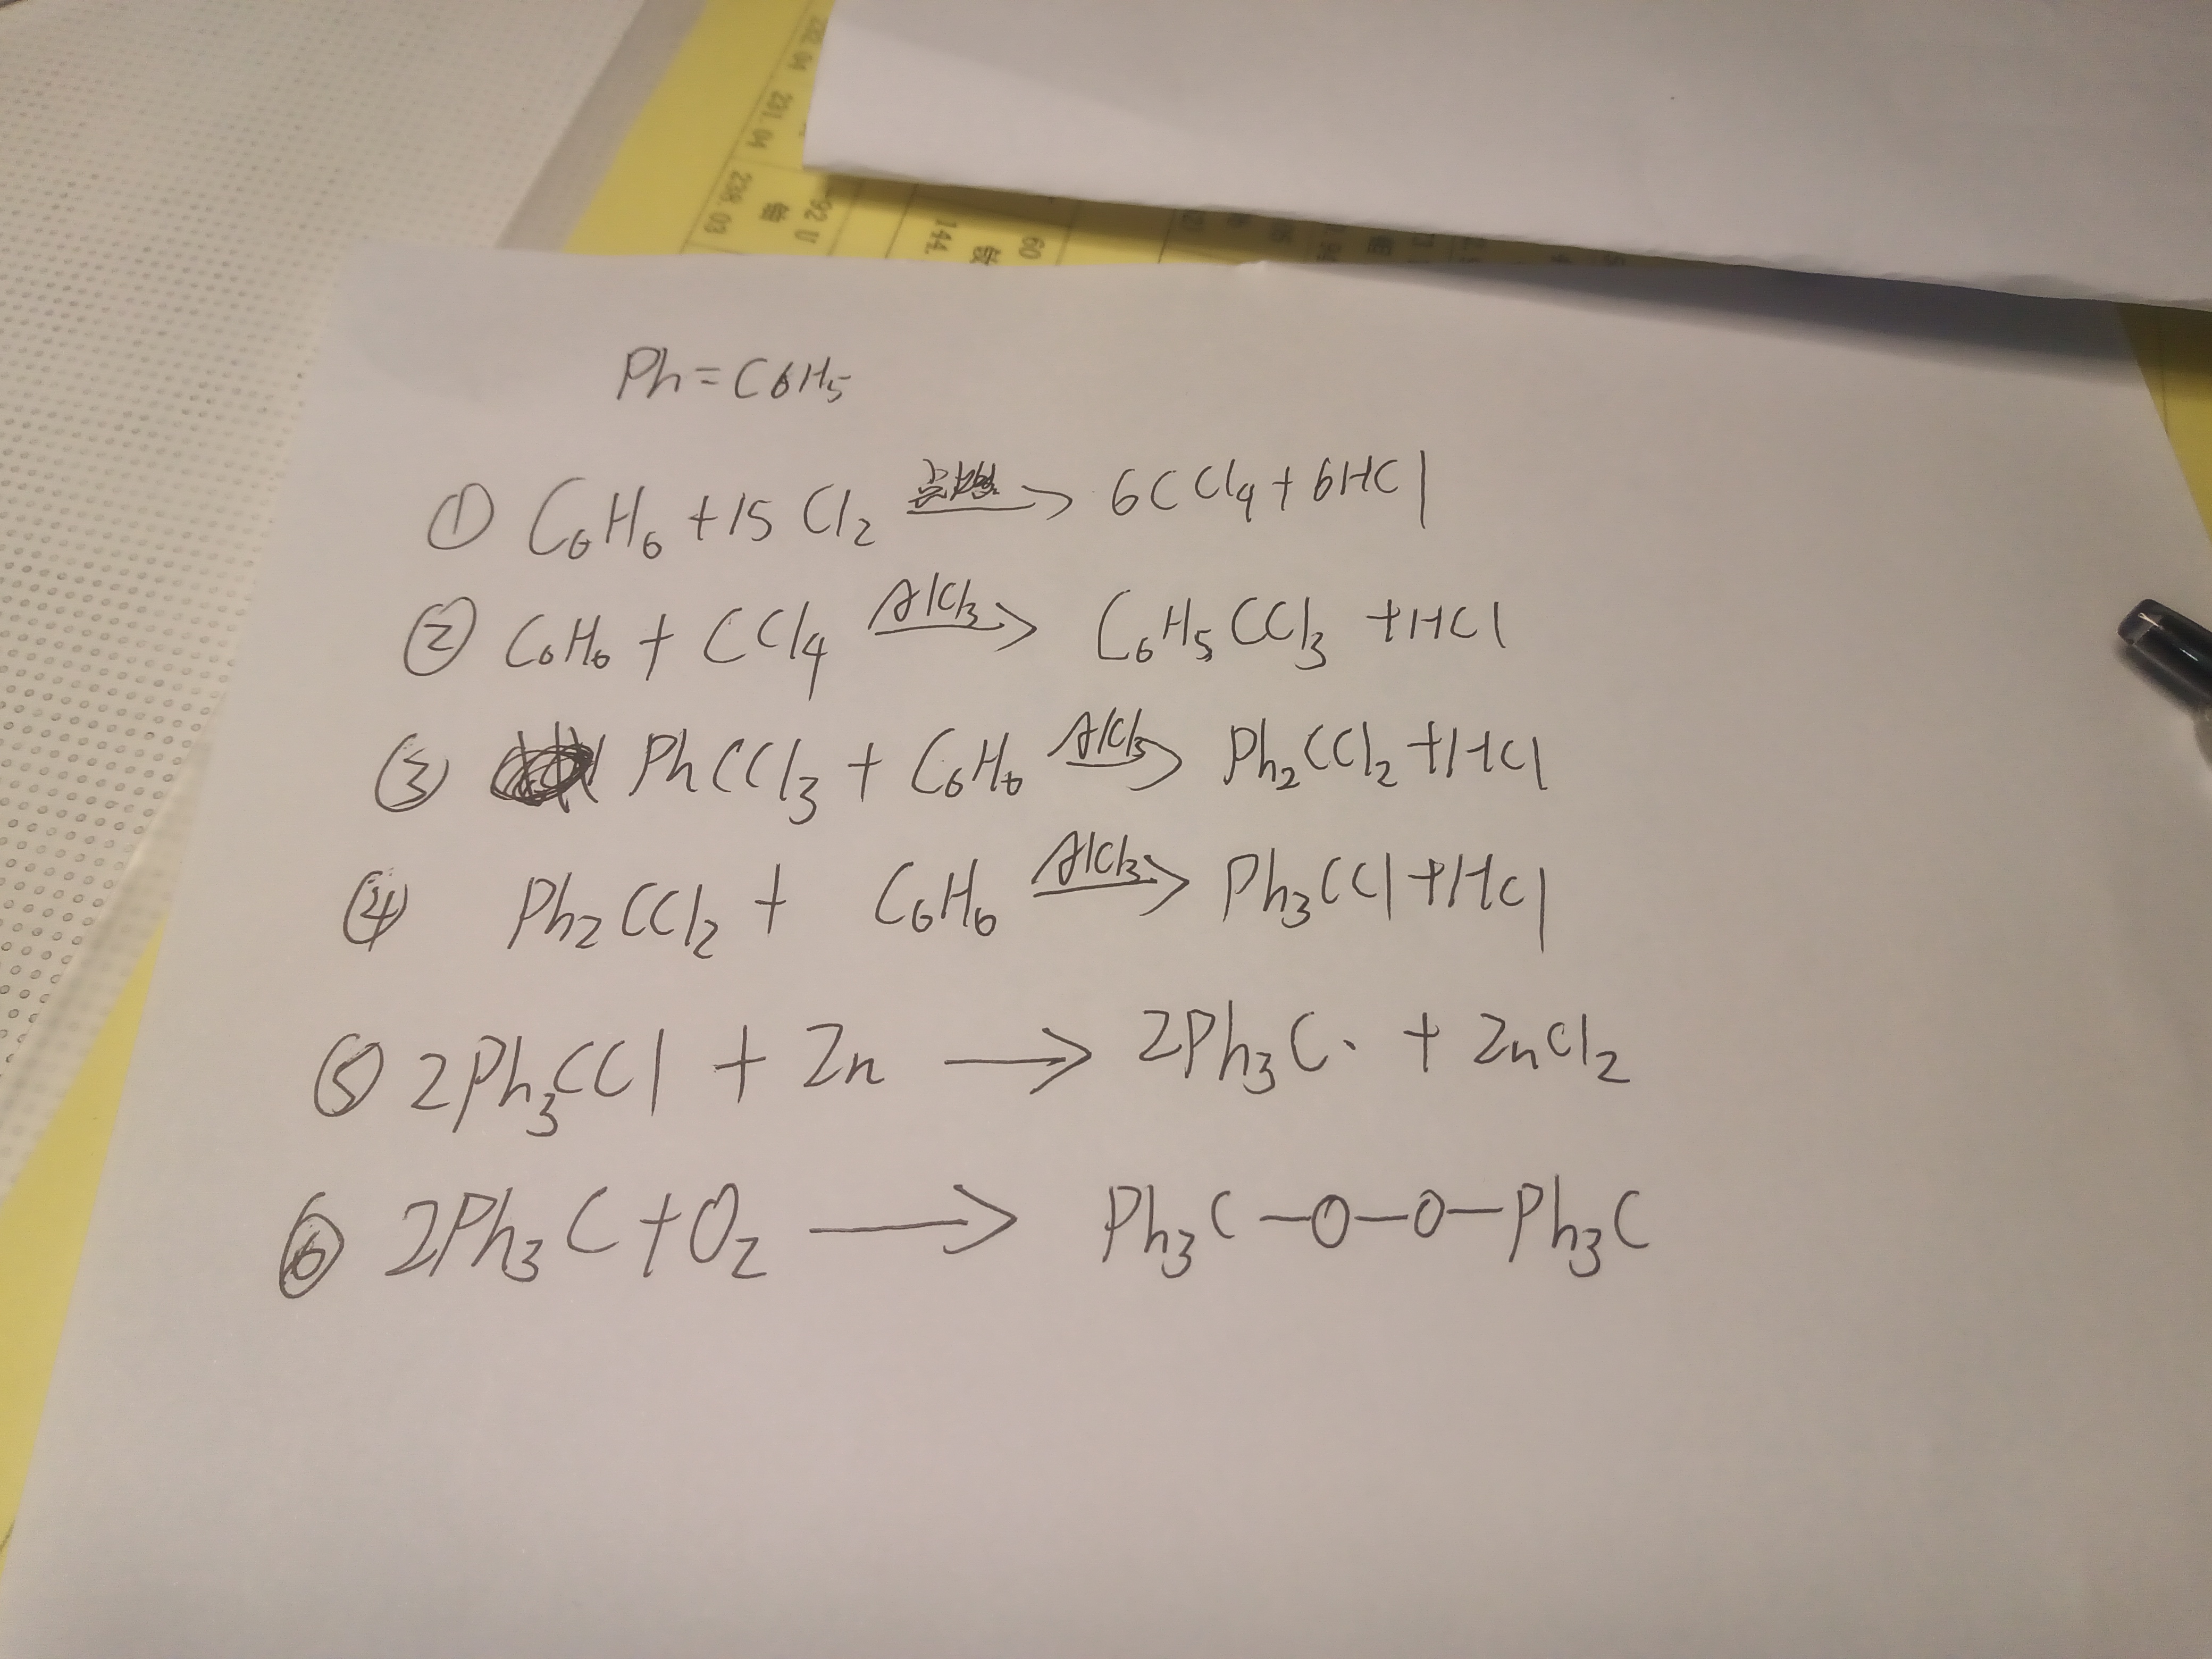 232.04 231.04
238.03
92 U
铀
60
144.
Ph=C6H5
① C6H6+15Cl2 点燃→ 6CCl4+6HCl
② C6H6+CCl4 AlCl3→ C6H5CCl3+HCl
③ PhCCl3+C6H6 AlCl3→ Ph2CCl2+HCl
④ Ph2CCl2+C6H6 AlCl3→ Ph3CCl+HCl
⑤ 2Ph3CCl+Zn → 2Ph3C·+ZnCl2
⑥ 2Ph3C+O2 → Ph3C-O-O-Ph3C